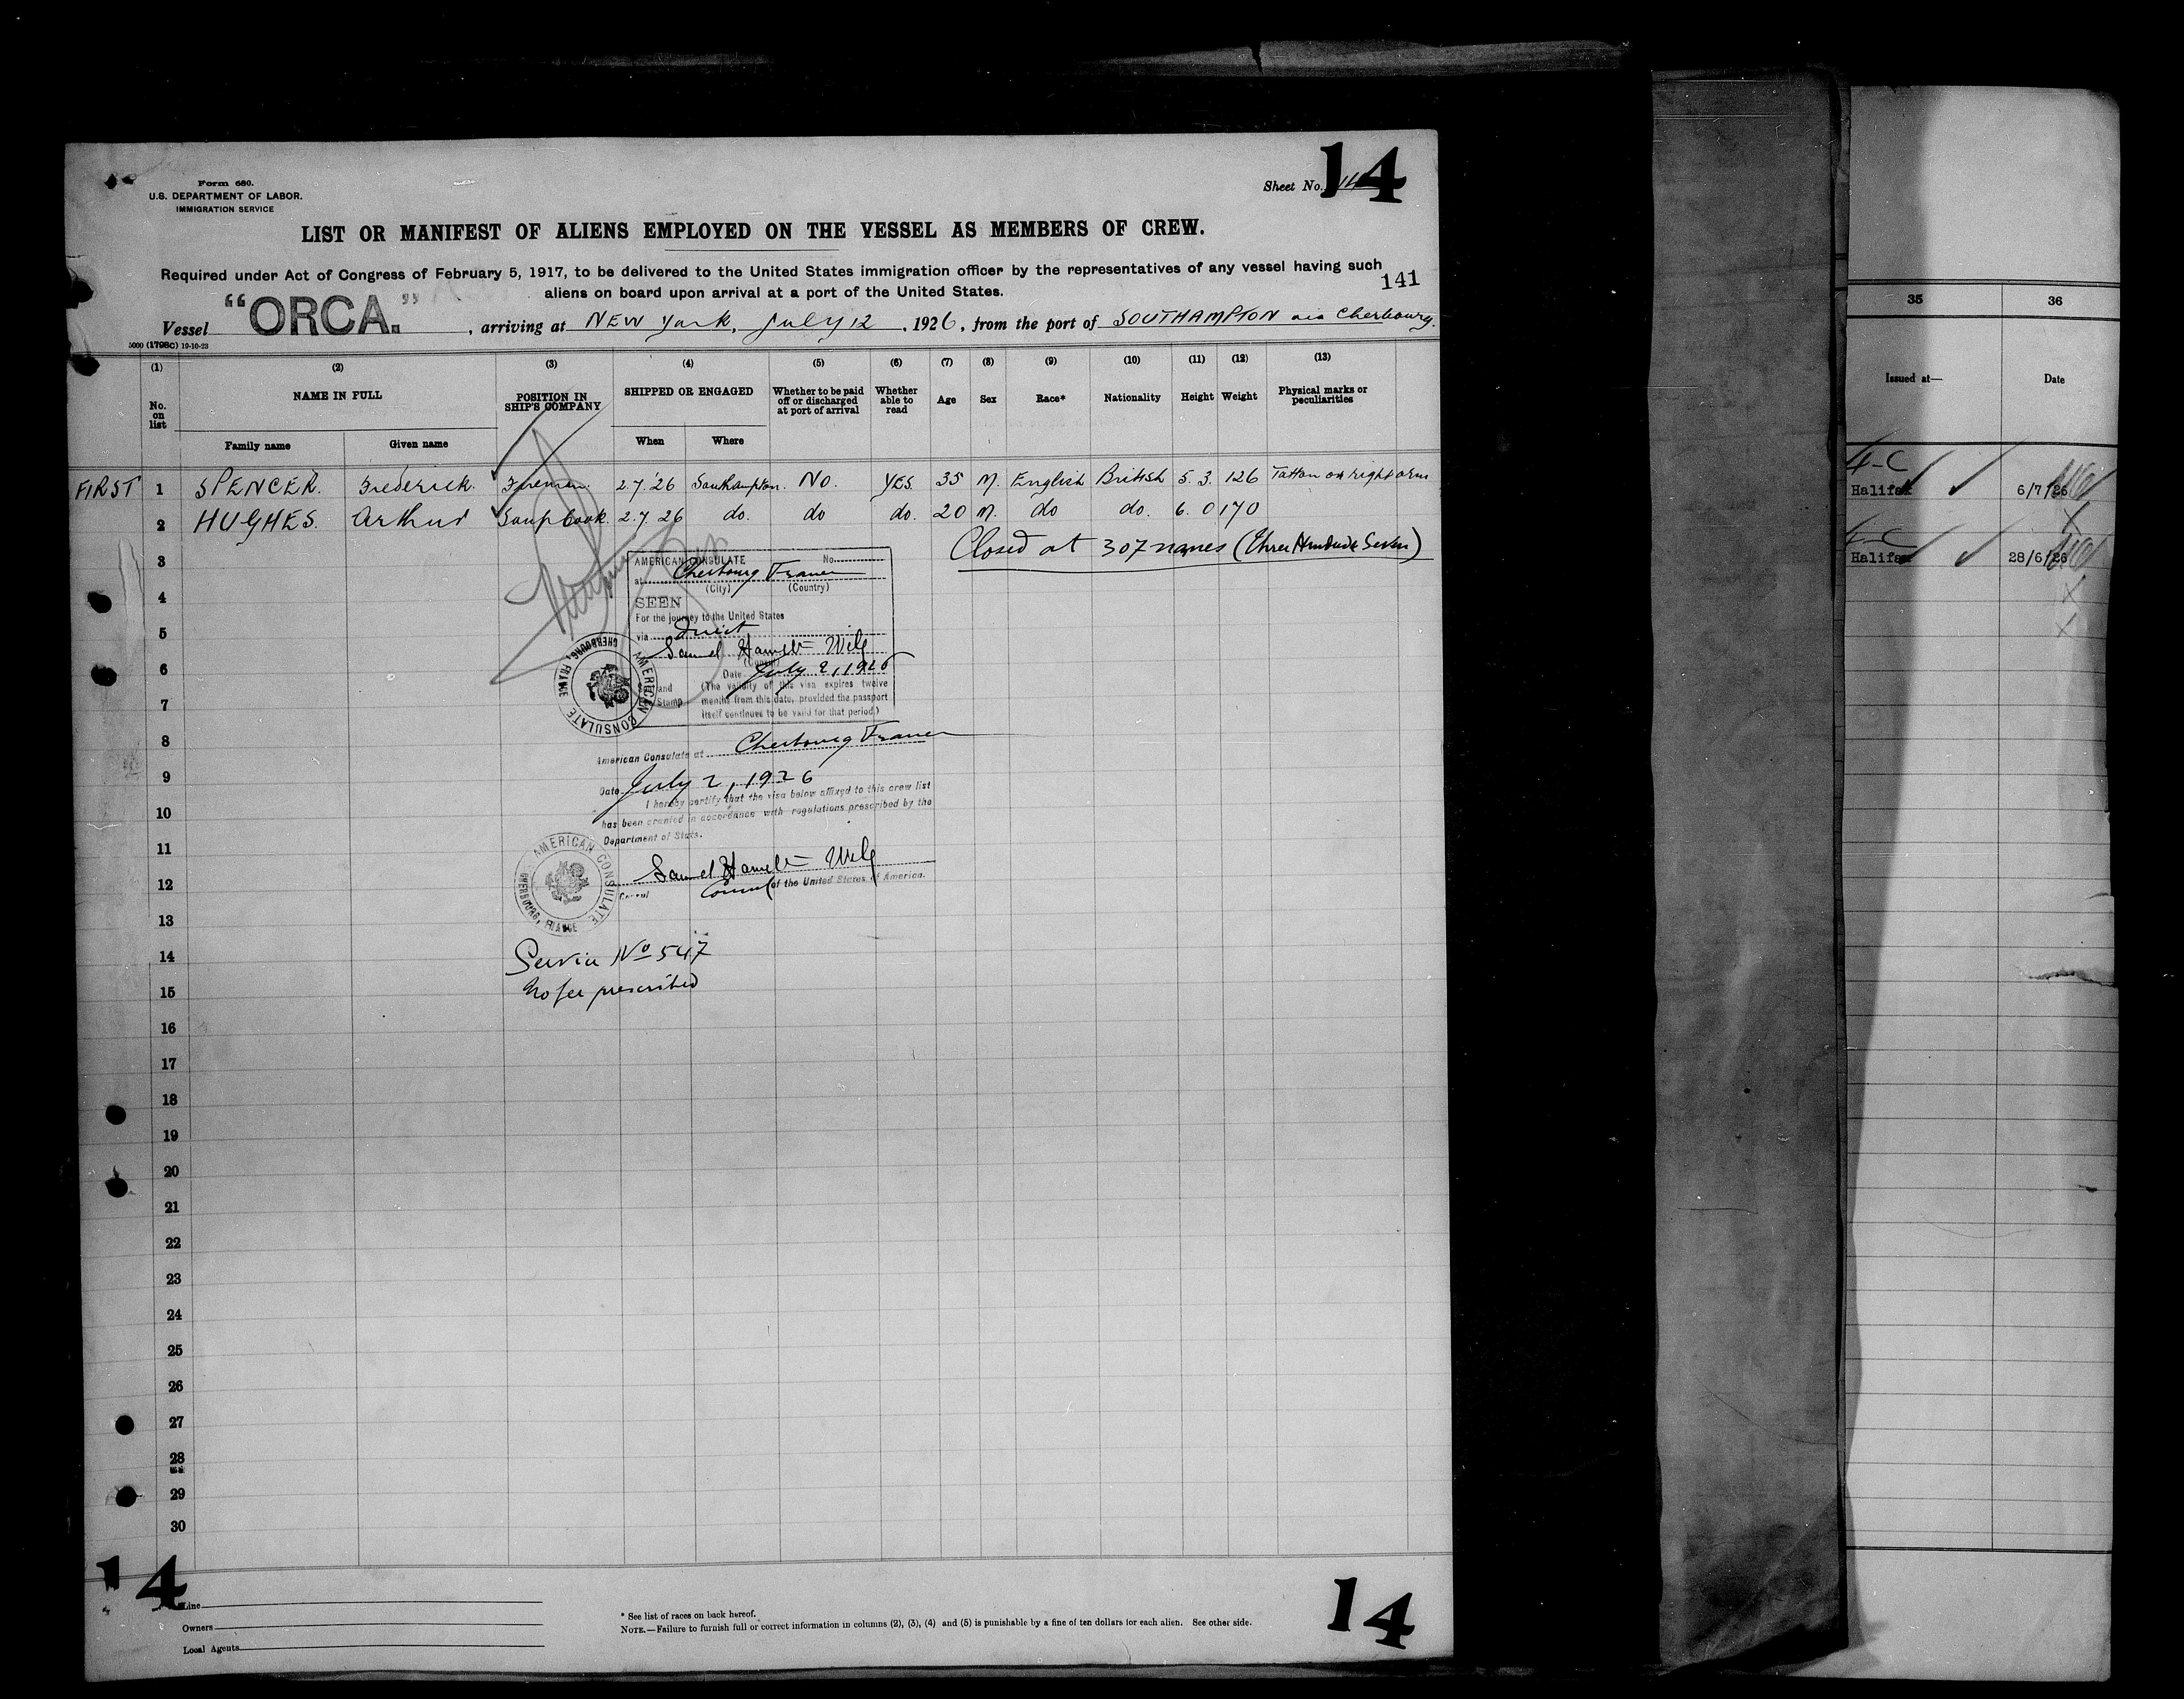 14
Form 680.
U.S. DEPARTMENT OF LABOR.
IMMIGRATION SERVICE
Sheet No. 14
LIST OR MANIFEST OF ALIENS EMPLOYED ON THE VESSEL AS MEMBERS OF CREW.
Required under Act of Congress of February 5, 1917, to be delivered to the United States immigration officer by the representatives of any vessel having such
aliens on board upon arrival at a port of the United States.
141
Vessel "ORCA." , arriving at NEW York, July 12 , 1926, from the port of SOUTHAMPTON via Cherbourg.
5000 (1798C) 19-10-23
(1) (2) (3) (4) (5) (6) (7) (8) (9) (10) (11) (12) (13)
No. on list NAME IN FULL POSITION IN SHIP'S COMPANY SHIPPED OR ENGAGED Whether to be paid off or discharged at port of arrival Whether able to read Age Sex Race* Nationality Height Weight Physical marks or peculiarities
Family name Given name When Where
FIRST 1 SPENCER. Frederick. Fireman. 2.7.'26 Southampton. No. YES. 35 M. English British 5. 3. 126 Tattoo on right arm
2 HUGHES. Arthur Soup Cook. 2.7.26 do. do do. 20 M. do do. 6. 0 170
Closed at 307 names (Three Hundred & Seven)
3
4
5
6
7
8
9
10
11
12
13
14
15
16
17
18
19
20
21
22
23
24
25
26
27
28
29
30
AMERICAN CONSULATE No.
at Cherbourg France
(City) (Country)
SEEN
For the journey to the United States
via direct
Samuel Hamilt Wiley
(Consul)
Date July 2, 1926
Seal and Stamp
(The validity of this visa expires twelve
months from this date, provided the passport
itself continues to be valid for that period.)
AMERICAN CONSULATE
CHERBOURG, FRANCE
American Consulate at Cherbourg France
Date July 2, 1926
I hereby certify that the visa below affixed to this crew list
has been granted in accordance with regulations prescribed by the
Department of State.
AMERICAN CONSULATE
CHERBOURG, FRANCE
Samuel Hamilt Wiley
Consul Consul of the United States of America.
Service No 547
No fee prescribed
14
Line
Owners
Local Agents
* See list of races on back hereof.
NOTE.—Failure to furnish full or correct information in columns (2), (3), (4) and (5) is punishable by a fine of ten dollars for each alien. See other side.
14
35 36
Issued at— Date
4-C
Halifax 6/7/26
4-C
Halifax 28/6/26